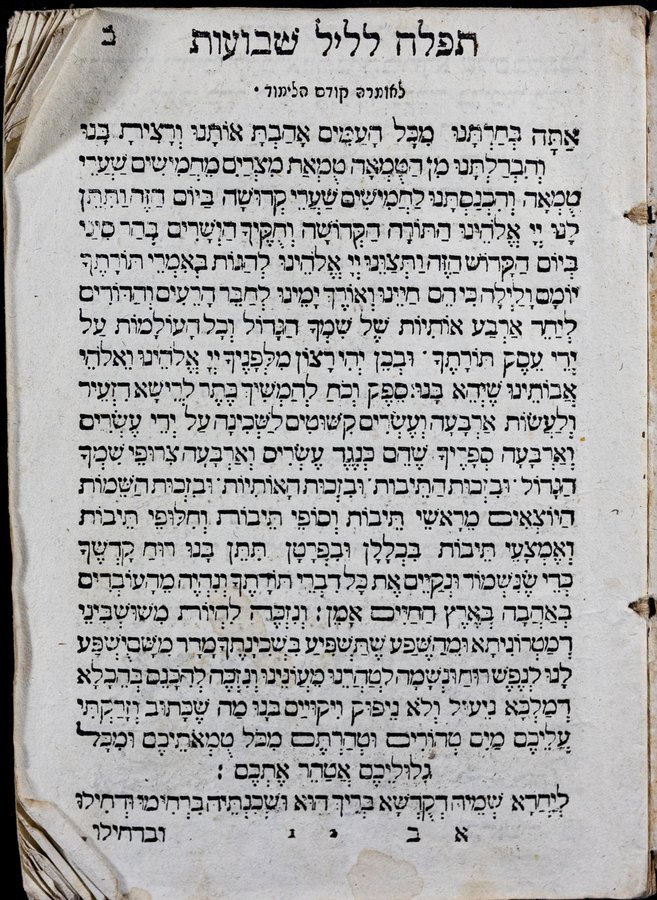 ב
תפלה לליל שבועות
לאומרה קודם הלימוד •
אַתָּה בְּחַרְתָּנוּ מִכָּל הָעַמִּים אָהַבְתָּ אוֹתָנוּ וְרָצִיתָ בָּנוּ
וְהִבְדַלְתָּנוּ מִן הַטֻּמְאָה טֻמְאַת מִצְרַיִם מֵחֲמִישִׁים שַׁעֲרֵי
טֻמְאָה וְהִכְנַסְתָּנוּ לַחֲמִישִׁים שַׁעֲרֵי קְדוּשָׁה בַּיּוֹם הַזֶּה וַתִּתֵּן
לָנוּ יְיָ אֱלֹהֵינוּ הַתּוֹרָה הַקְּדוֹשָׁה וְחֻקֶּיךָ הַיְשָׁרִים בְּהַר סִינַי
בְּיוֹם הַקָּדוֹשׁ הַזֶּה וַתְּצַוֵּנוּ יְיָ אֱלֹהֵינוּ לַהֲגוֹת בְּאִמְרֵי תוֹרָתֶךָ
יוֹמָם וָלַיְלָה כִּי הֵם חַיֵּינוּ וְאוֹרֶךְ יָמֵינוּ לְחַבֵּר הָרֵעִים וְהַדּוֹדִים
לְיַחֵד אַרְבַּע אוֹתִיּוֹת שֶׁל שִׁמְךָ הַגָּדוֹל וְכָל הָעוֹלָמוֹת עַל
יְדֵי עֵסֶק תּוֹרָתֶךָ · וּבְכֵן יְהִי רָצוֹן מִלְּפָנֶיךָ יְיָ אֱלֹהֵינוּ וֵאלֹהֵי
אֲבוֹתֵינוּ שֶׁיְּהֵא בָּנוּ סִפֵּק וְכֹחַ לְהַמְשִׁיךְ כֶּתֶר לְרֵישָׁא דִזְעֵיר
וְלַעֲשׂוֹת אַרְבָּעָה וְעֶשְׂרִים קִשּׁוּטִים לַשְּׁכִינָה עַל יְדֵי עֶשְׂרִים
וְאַרְבָּעָה סְפָרֶיךָ שֶׁהֵם כְּנֶגֶד עֶשְׂרִים וְאַרְבָּעָה צֵרוּפֵי שִׁמְךָ
הַגָּדוֹל · וּבִזְכוּת הַתֵּיבוֹת · וּבִזְכוּת הָאוֹתִיּוֹת · וּבִזְכוּת הַשֵּׁמוֹת
הַיּוֹצְאִים מֵרָאשֵׁי תֵּיבוֹת וְסוֹפֵי תֵּיבוֹת וְחִלּוּפֵי תֵּיבוֹת
וְאֶמְצָעֵי תֵּיבוֹת בִּכְלָלָן וּבִפְרָטָן תִּתֵּן בָּנוּ רוּחַ קָדְשֶׁךָ
כְּדֵי שֶׁנִּשְׁמוֹר וּנְקַיֵּים אֶת כָּל דִּבְרֵי תוֹרָתֶךָ וְנִהְיֶה מֵהָעוֹבְדִים
בְּאַהֲבָה בְּאֶרֶץ הַחַיִּים אָמֵן : וְנִזְכֶּה לִהְיוֹת מִשּׁוּשְׁבִּינֵי
דְמַטְרוֹנִיתָא וּמֵהַשֶּׁפַע שֶׁתַּשְׁפִּיעַ בִּשְׁכִינָתֶךָ מָדַר מִשָּׁם יֻשְׁפַּע
לָנוּ לְנֶפֶשׁ רוּחַ וּנְשָׁמָה לְטַהֲרֵנוּ מֵעֲוֹנֵינוּ וְנִזְכֶּה לְהִכָּנֵס בְּהֵכָלָא
דְמַלְכָּא נֵיעוּל וְלֹא נֵיפוֹק וִיקוּיַּים בָּנוּ מַה שֶּׁכָּתוּב וְזָרַקְתִּי
עֲלֵיכֶם מַיִם טְהוֹרִים וּטְהַרְתֶּם מִכֹּל טֻמְאֹתֵיכֶם וּמִכָּל
גִּלּוּלֵיכֶם אֲטַהֵר אֶתְכֶם :
לְיַחֲדָא שְׁמֵיהּ דְּקֻדְשָׁא בְּרִיךְ הוּא וּשְׁכִנְתֵּיהּ בִּרְחִימוּ וּדְחִילוּ
א ב 2 1 ובדחילו